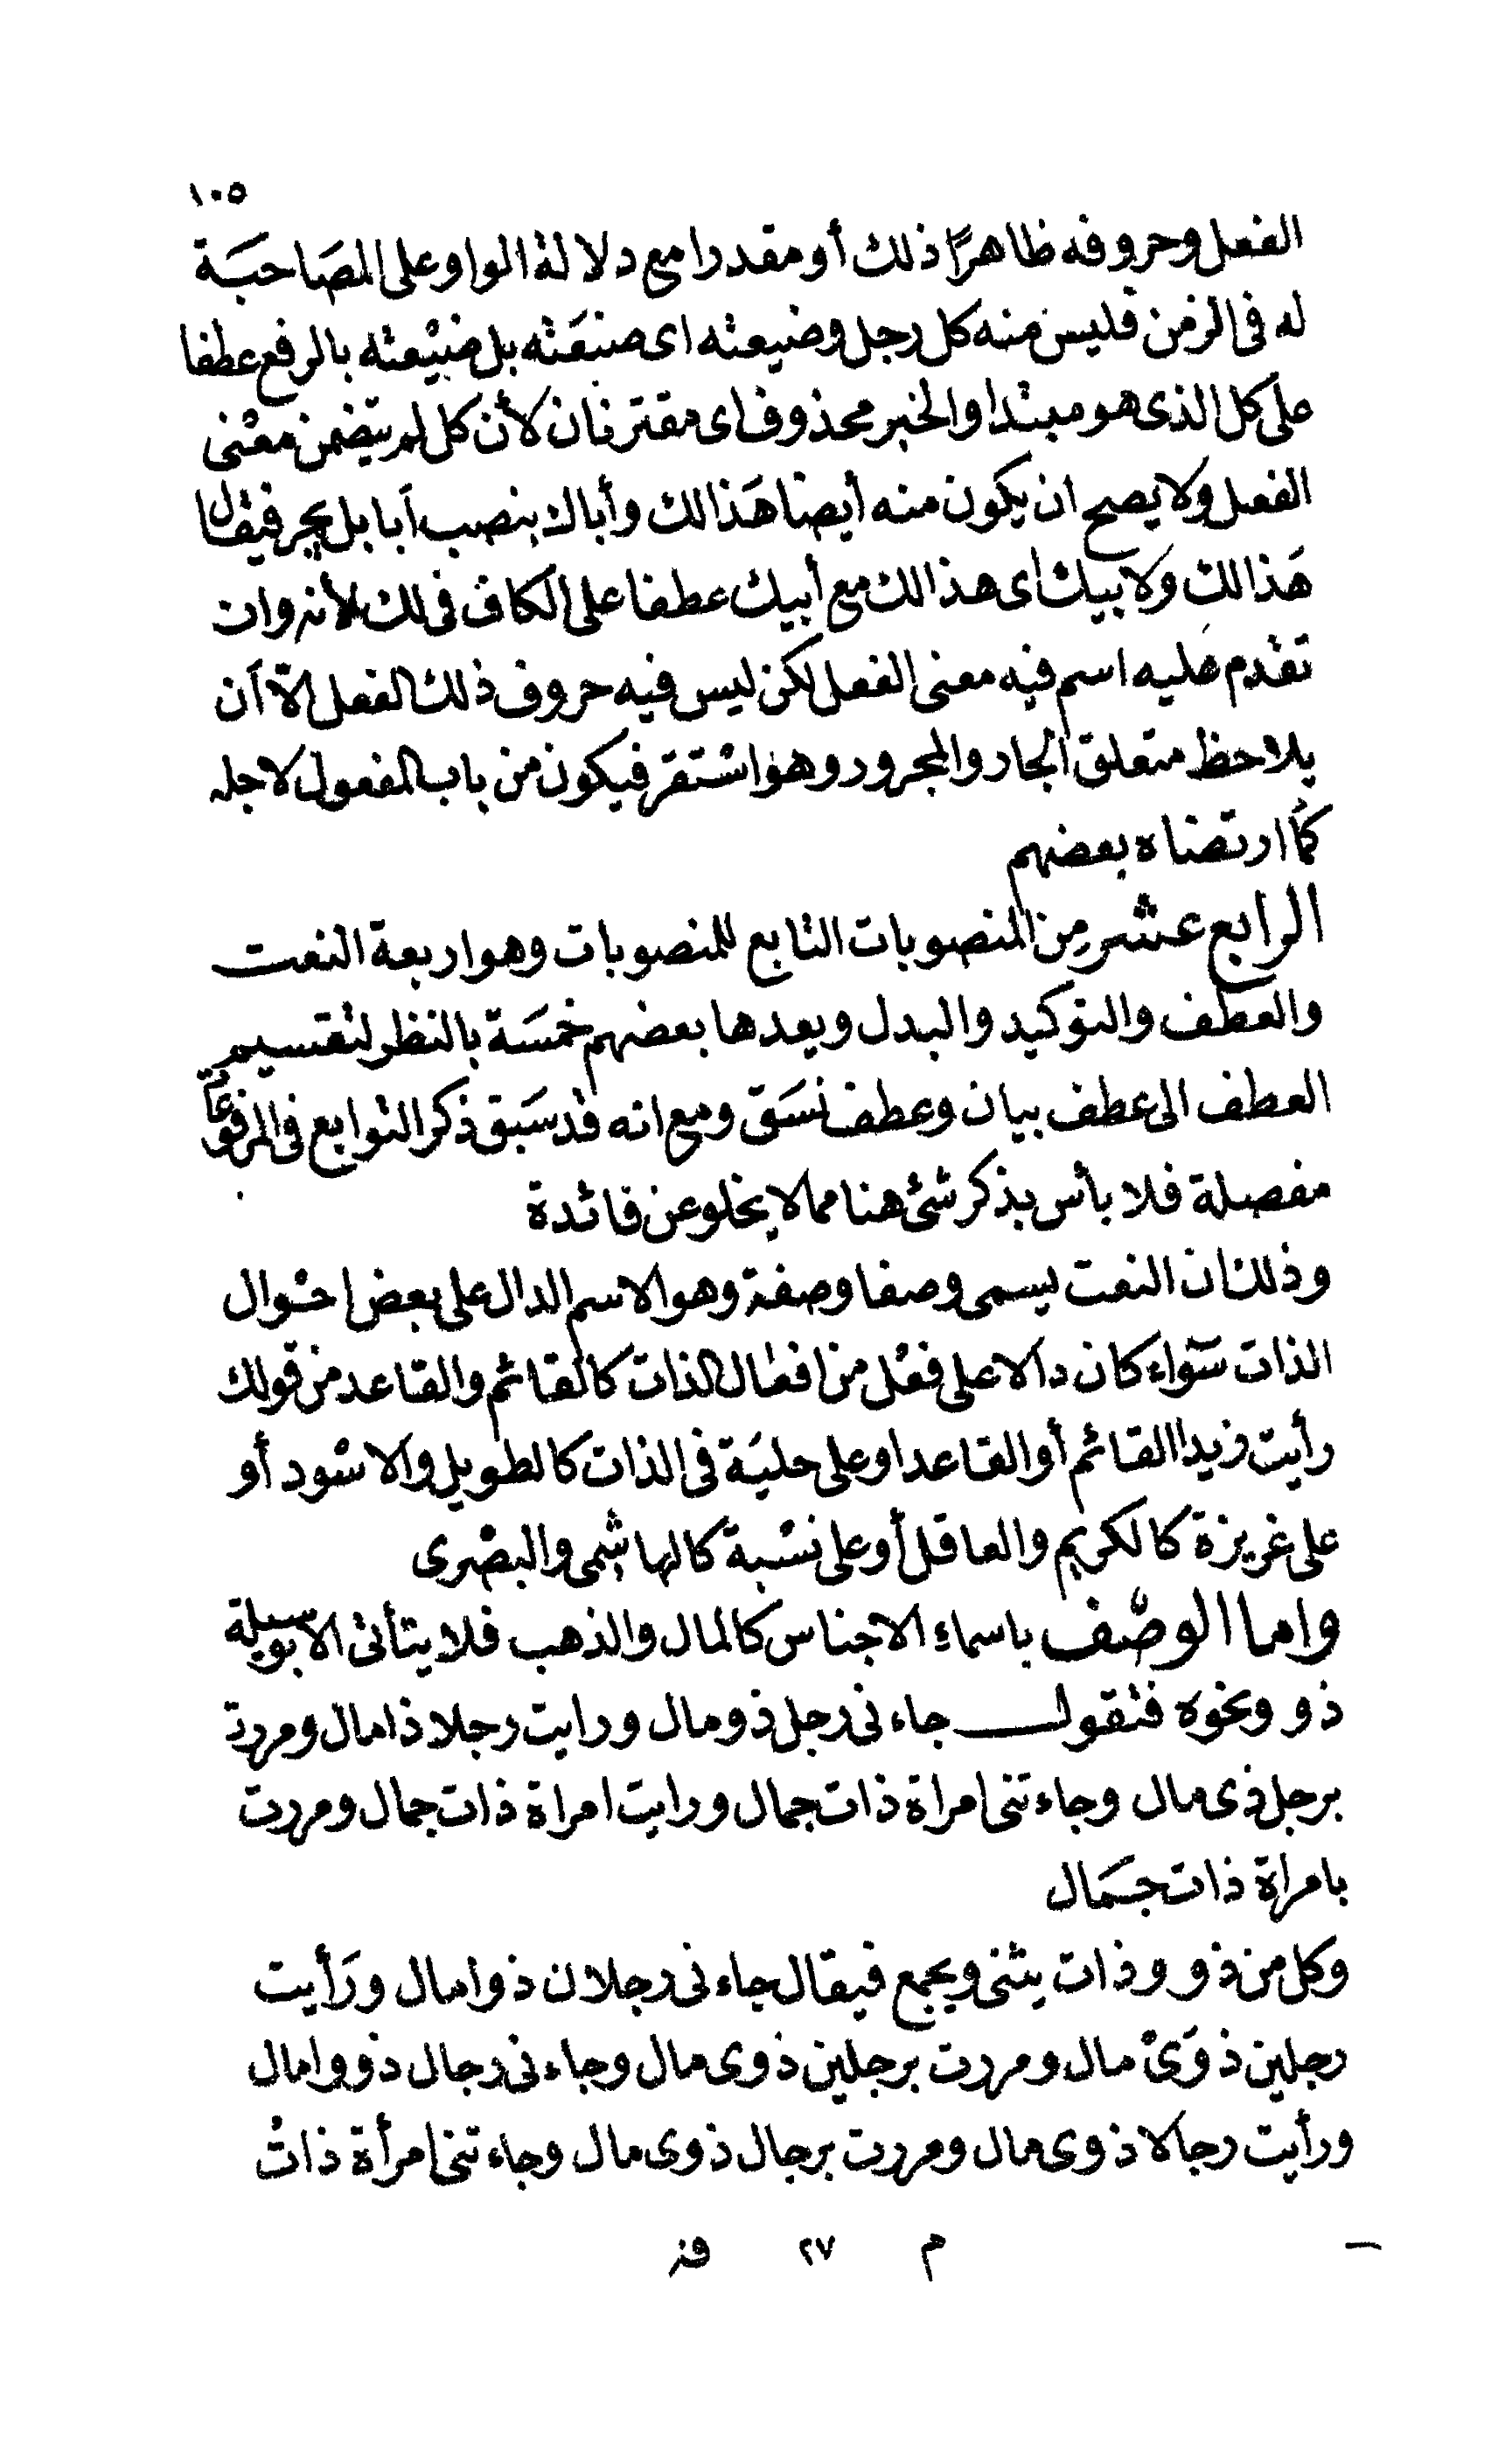 ١٠٥
الفعل وحروفه ظاهرًا ذلك أو مقدرا مع دلالة الواو على المصَاحبَة
له فى الزمن فليس منه كل رجل وضيعته اى صنعَته بل ضيْعته بالرفع عطفا
على كل الذى هو مبتدا والخبر محذوف اى مقترنان لأن كل لم يتضمن معْنى
الفعل ولا يصح ان يكون منه أيضا هَذا لك وأباك بنصب أبا بل يجر فيقال
هَذا لك ولابيك اى هذا لك مع أبيك عطفا على الكاف فى لك لأنه وان
تقدم عليه اسم فيه معنى الفعل لكن ليس فيه حروف ذلك الفعل الّا أن
يلاحظ متعلق الجار والمجرور وهو اسْتقر فيكون من باب المفعول لاجله
كما ارتضاه بعضهم
الرابع عشر من المنصوبات التابع للمنصوبات وهو اربعة النعت
والعطف والتوكيد والبدل ويعدها بعضهم خمسَة بالنظر لتقسيم
العطف الى عطف بيان وعطف نسَق ومع انه قد سَبق ذكر التوابع فى المرفوعات
مفصلة فلا بأس بذكر شئ هنا مما لا يخلو عن فائدة
وذلك ان النعت يسمى وصفا وصفة وهو الاسم الدال على بعض احْوال
الذات سَواء كان دالا على فعْل من افعال الذات كالقائم والقاعد من قولك
رأيت زيدا القائم أو القاعد او على حليَة فى الذات كالطويل والاسْود أو
على غريزة كالكريم والعاقل أو على نسْبة كالهاشمى والبصْرى
واما الوصْف باسماء الاجناس كالمال والذهب فلا يتأتى الا بوسيلة
ذو ونحوه فتقول جاءنى رجل ذو مال ورايت رجلا ذا مال ومررت
برجل ذى مال وجاءتنى امراة ذات جمال ورايت امراة ذات جمال ومررت
بامراة ذات جمَال
وكل من ذو وذات يثنى ويجمع فيقال جاءنى رجلان ذوا مال ورَأيت
رجلين ذوَىْ مال ومررت برجلين ذوى مال وجاءنى رجال ذووا مال
ورأيت رجالا ذوى مال ومررت برجال ذوى مال وجاءتنى امرأة ذاتُ
م ٢٧